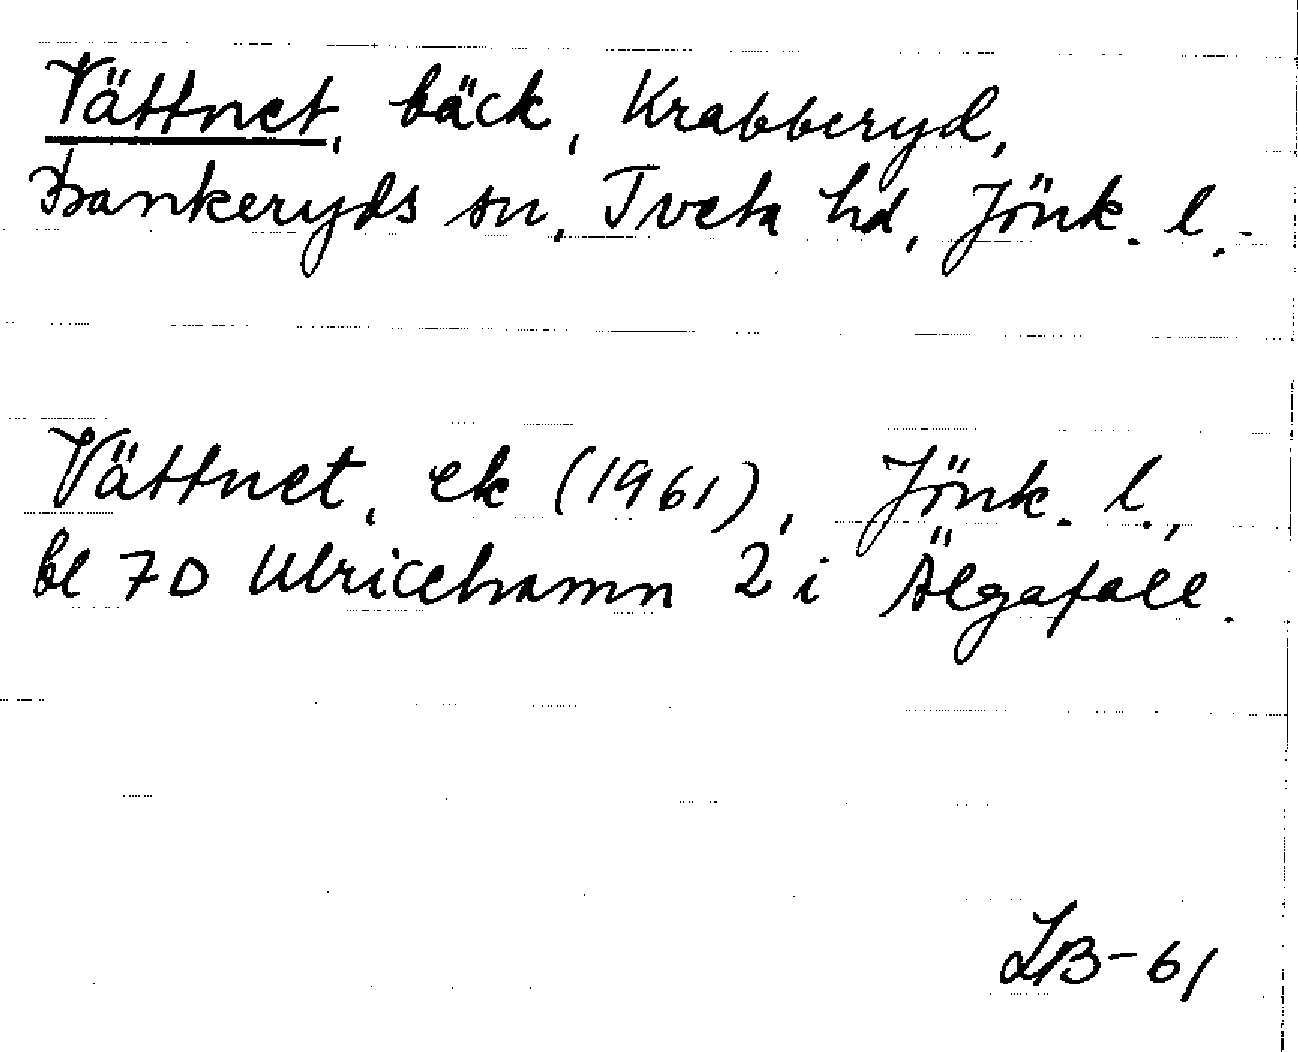 Vättnet, bäck, Krabberyd,
Bankeryds sn, Tveta hd, Jönk. l.-
Vättnet, ek (1961), Jönk. l.,
bl 7D Ulricehamn 2 i Älgafall.
LB-61